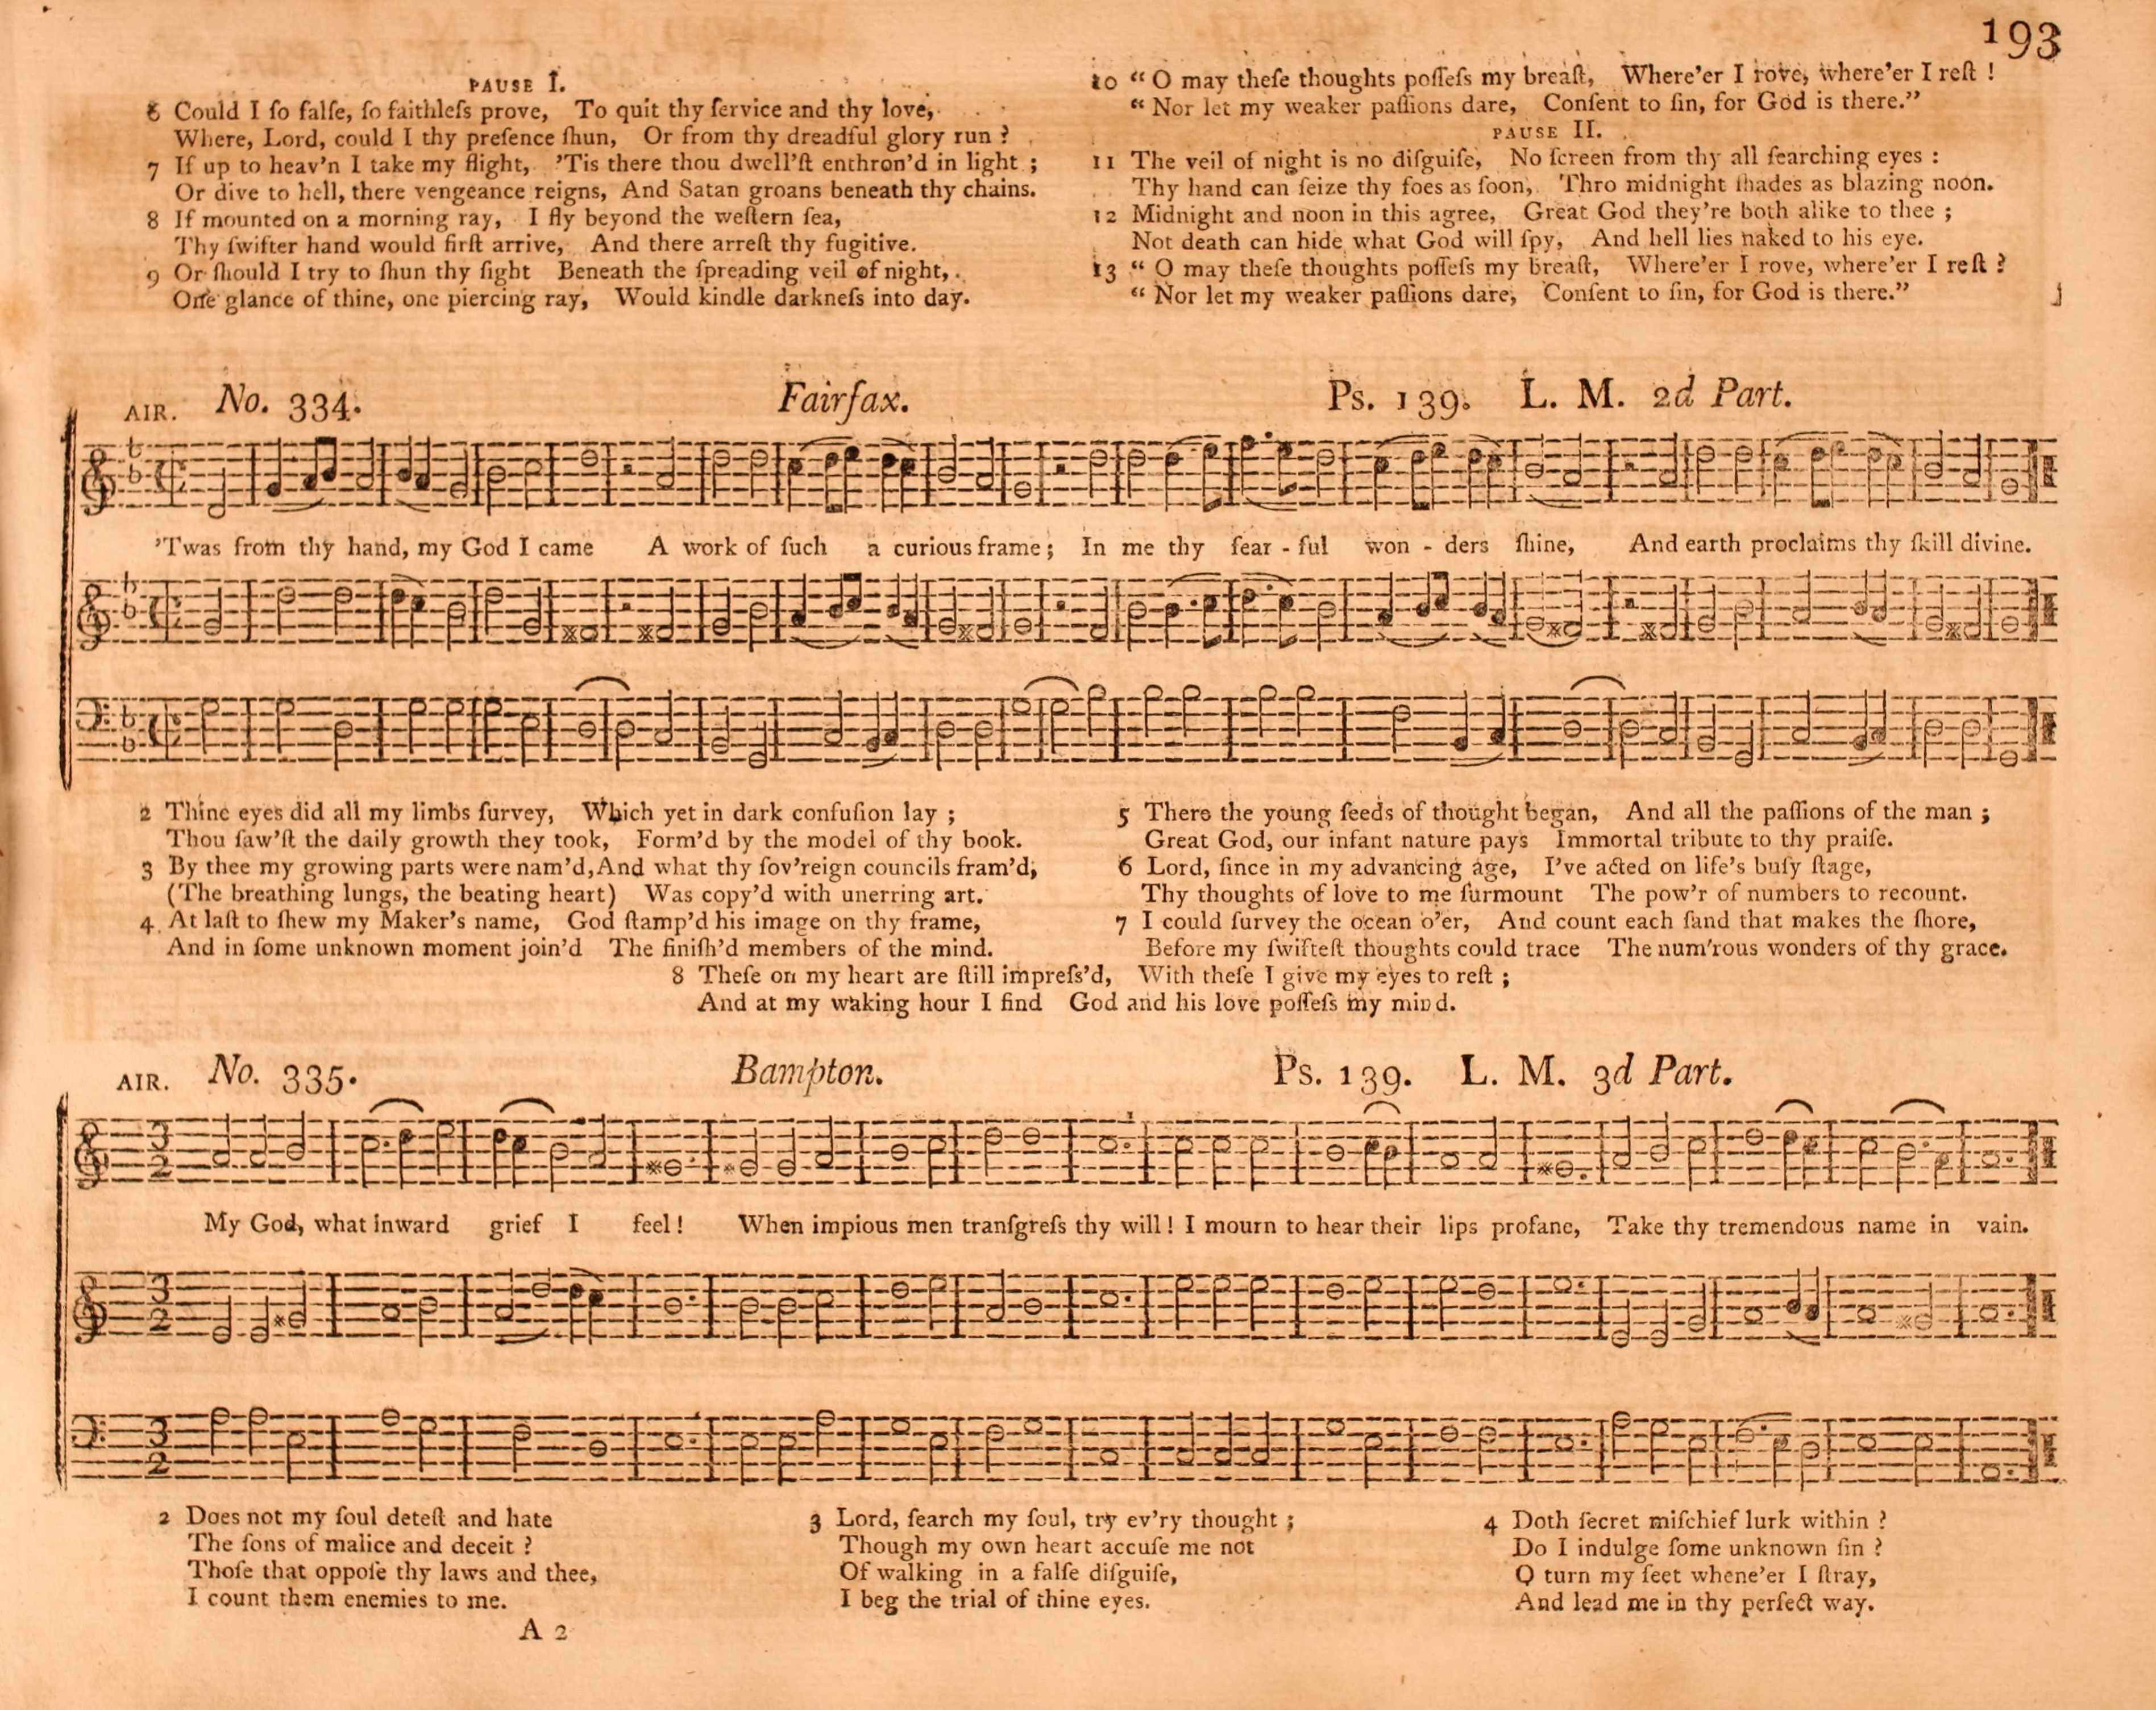 193
PAUSE I.
6 Could I ſo falſe, ſo faithleſs prove, To quit thy ſervice and thy love,
Where, Lord, could I thy preſence ſhun, Or from thy dreadful glory run ?
7 If up to heav'n I take my flight, 'Tis there thou dwell'ſt enthron'd in light ;
Or dive to hell, there vengeance reigns, And Satan groans beneath thy chains.
8 If mounted on a morning ray, I fly beyond the weſtern ſea,
Thy ſwifter hand would firſt arrive, And there arreſt thy fugitive.
9 Or ſhould I try to ſhun thy ſight Beneath the ſpreading veil of night,
One glance of thine, one piercing ray, Would kindle darkneſs into day.
10 “ O may theſe thoughts poſſeſs my breaſt, Where'er I rove, where'er I reſt !
“ Nor let my weaker paſſions dare, Conſent to ſin, for God is there.”
PAUSE II.
11 The veil of night is no diſguiſe, No ſcreen from thy all ſearching eyes :
Thy hand can ſeize thy foes as ſoon, Thro midnight ſhades as blazing noon.
12 Midnight and noon in this agree, Great God they're both alike to thee ;
Not death can hide what God will ſpy, And hell lies naked to his eye.
13 “ O may theſe thoughts poſſeſs my breaſt, Where'er I rove, where'er I reſt ?
“ Nor let my weaker paſſions dare, Conſent to ſin, for God is there.”
AIR. No. 334. Fairfax. Ps. 139. L. M. 2d Part.
'Twas from thy hand, my God I came A work of ſuch a curious frame ; In me thy fear - ful won - ders ſhine, And earth proclaims thy ſkill divine.
2 Thine eyes did all my limbs ſurvey, Which yet in dark confuſion lay ;
Thou ſaw'ſt the daily growth they took, Form'd by the model of thy book.
3 By thee my growing parts were nam'd, And what thy ſov'reign councils fram'd;
(The breathing lungs, the beating heart) Was copy'd with unerring art.
4 At laſt to ſhew my Maker's name, God ſtamp'd his image on thy frame,
And in ſome unknown moment join'd The finiſh'd members of the mind.
5 There the young ſeeds of thought began, And all the paſſions of the man ;
Great God, our infant nature pays Immortal tribute to thy praiſe.
6 Lord, ſince in my advancing age, I've acted on life's buſy ſtage,
Thy thoughts of love to me ſurmount The pow'r of numbers to recount.
7 I could ſurvey the ocean o'er, And count each ſand that makes the ſhore,
Before my ſwifteſt thoughts could trace The num'rous wonders of thy grace.
8 Theſe on my heart are ſtill impreſs'd, With theſe I give my eyes to reſt ;
And at my waking hour I find God and his love poſſeſs my mind.
AIR. No. 335. Bampton. Ps. 139. L. M. 3d Part.
3
2
My God, what inward grief I feel ! When impious men tranſgreſs thy will ! I mourn to hear their lips profane, Take thy tremendous name in vain.
3
2
3
2
2 Does not my ſoul deteſt and hate
The ſons of malice and deceit ?
Thoſe that oppoſe thy laws and thee,
I count them enemies to me.
3 Lord, ſearch my ſoul, try ev'ry thought ;
Though my own heart accuſe me not
Of walking in a falſe diſguiſe,
I beg the trial of thine eyes.
4 Doth ſecret miſchief lurk within ?
Do I indulge ſome unknown ſin ?
O turn my feet whene'er I ſtray,
And lead me in thy perfect way.
A 2